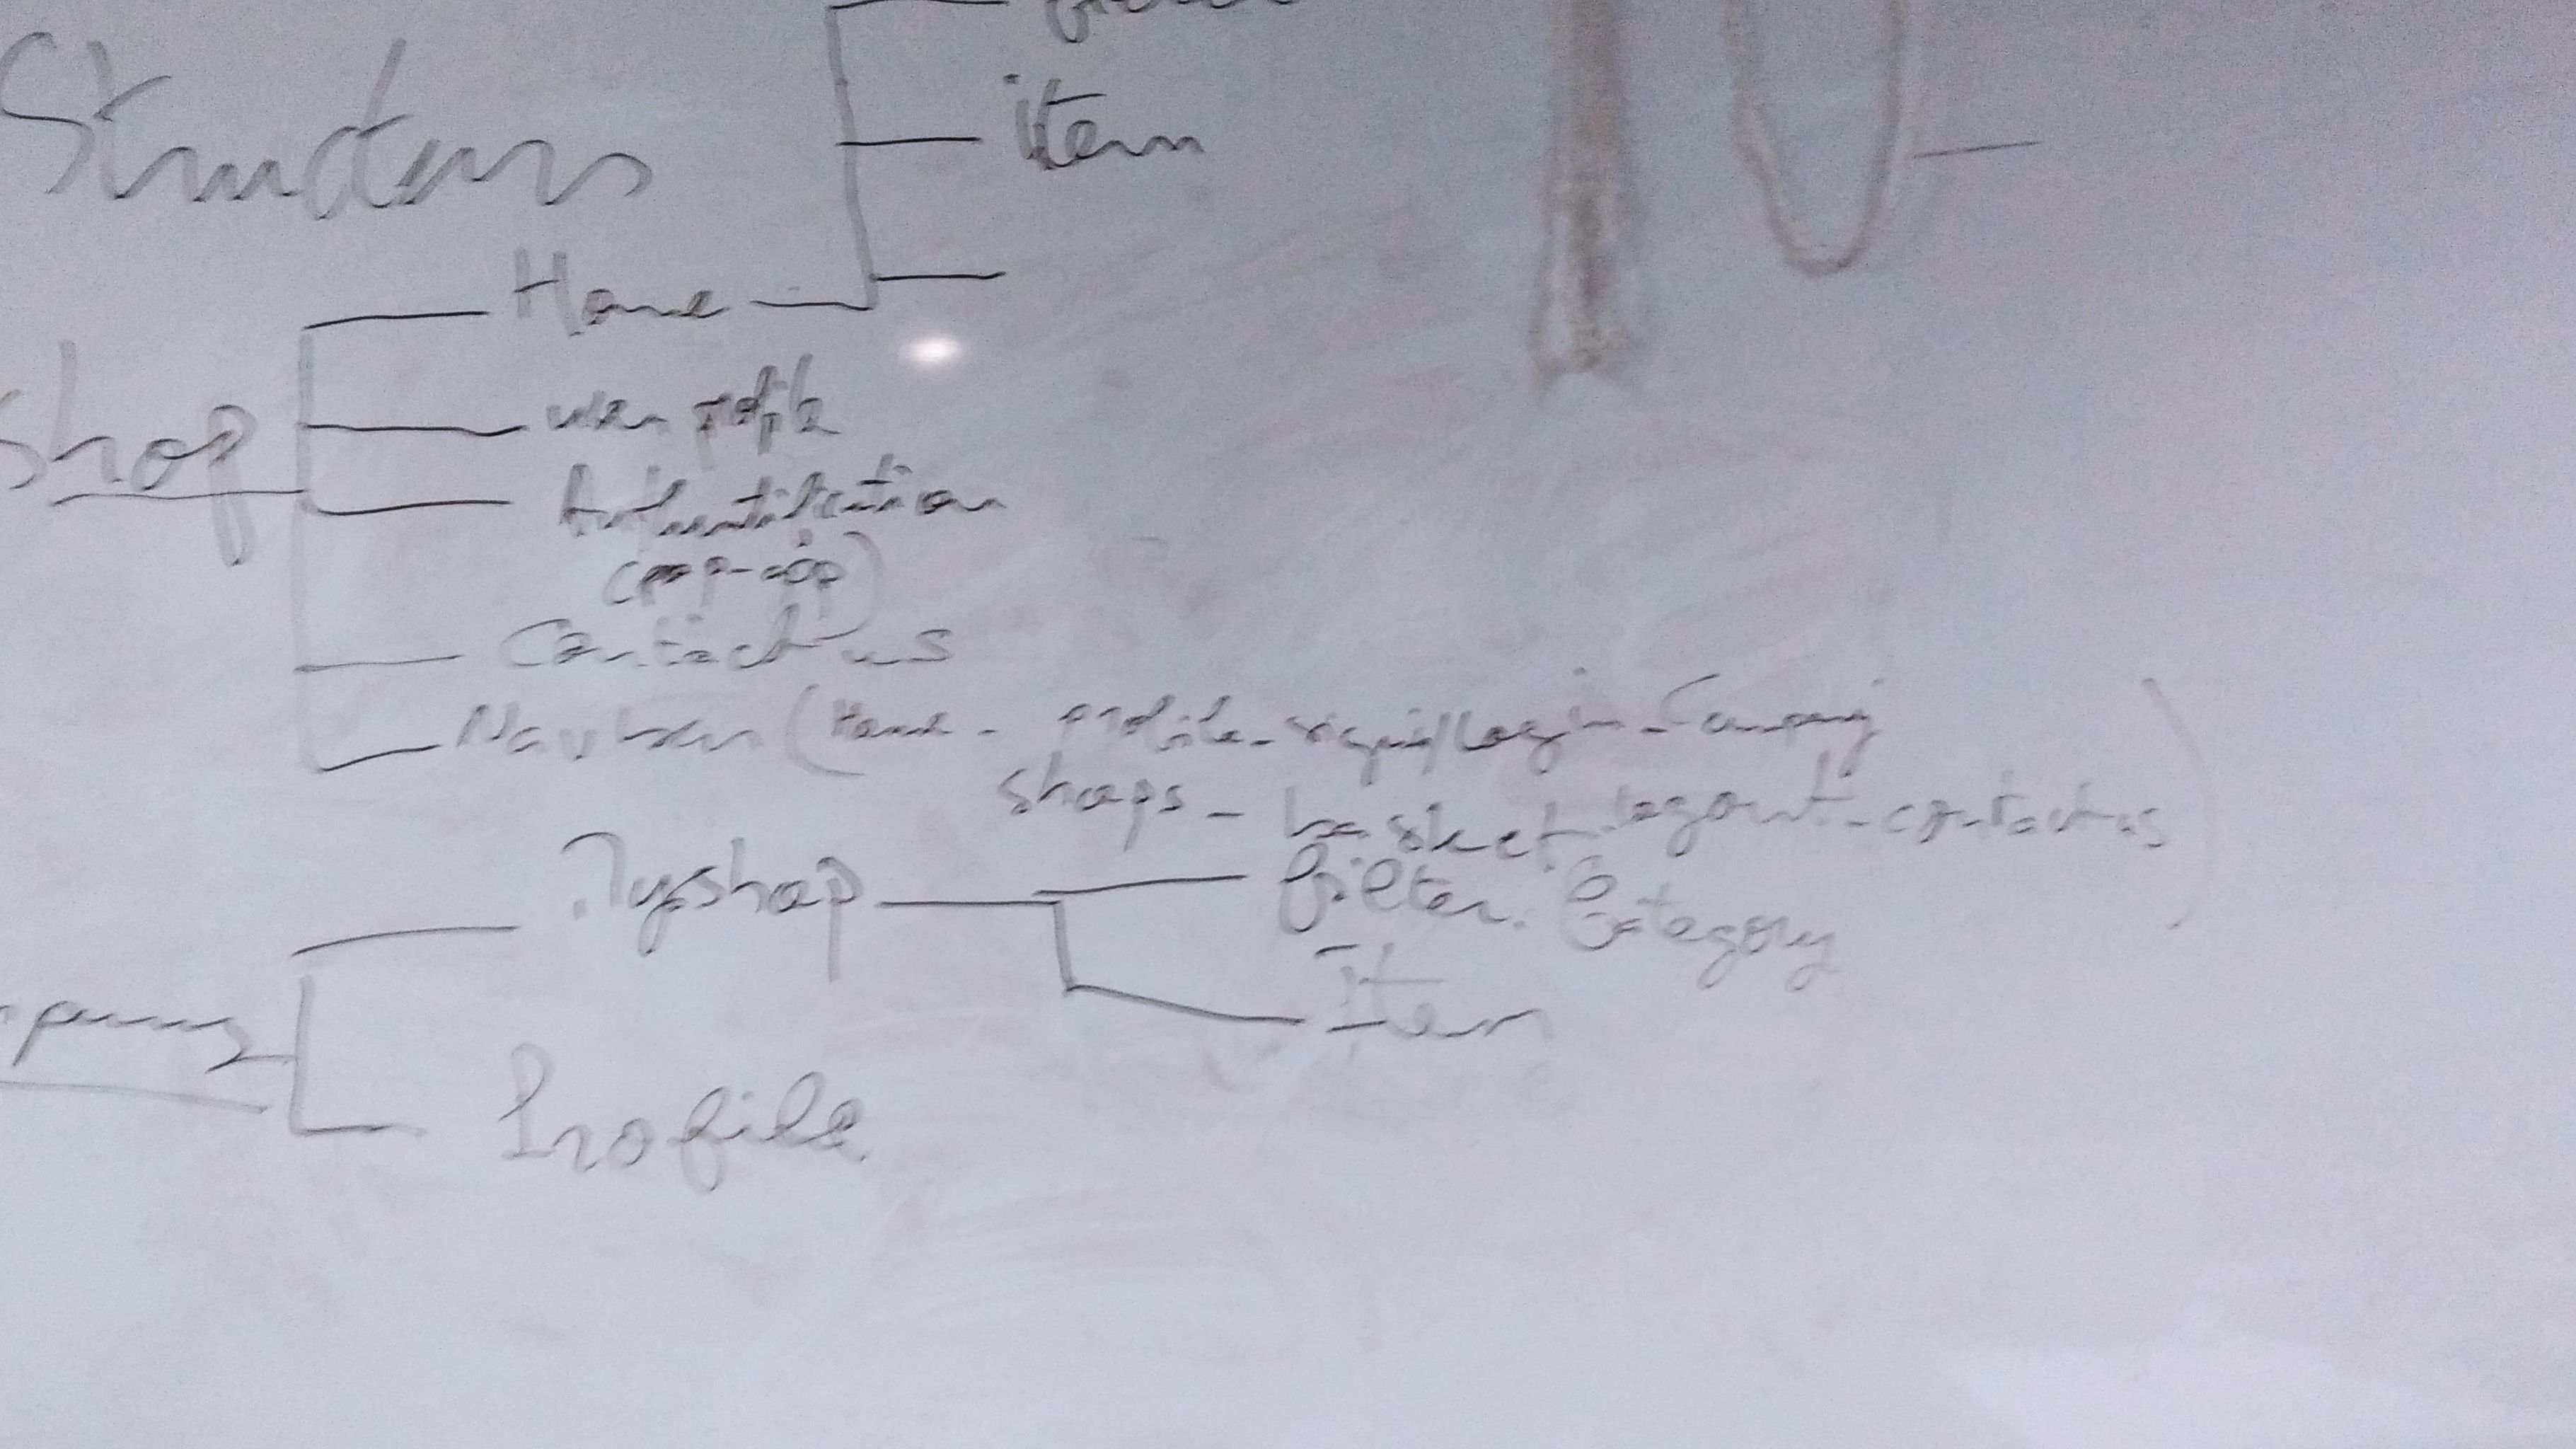 item
Structure
Home
shop
user profile
Authentification
(pop-up)
Contact us
Navbar (Home - profile - signin/login - Company
shops - basket - logout - contact us)
Myshop
filter. Category
Item
Profile